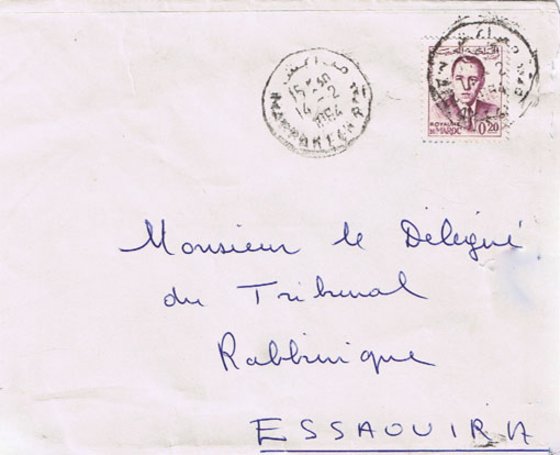 مراكش
15H30
14 - 2
1964
MARRAKECH R.P.
ROYAUME
DU MAROC
0,20
Monsieur le Délégué
du Tribunal
Rabbinique
ESSAOUIRA